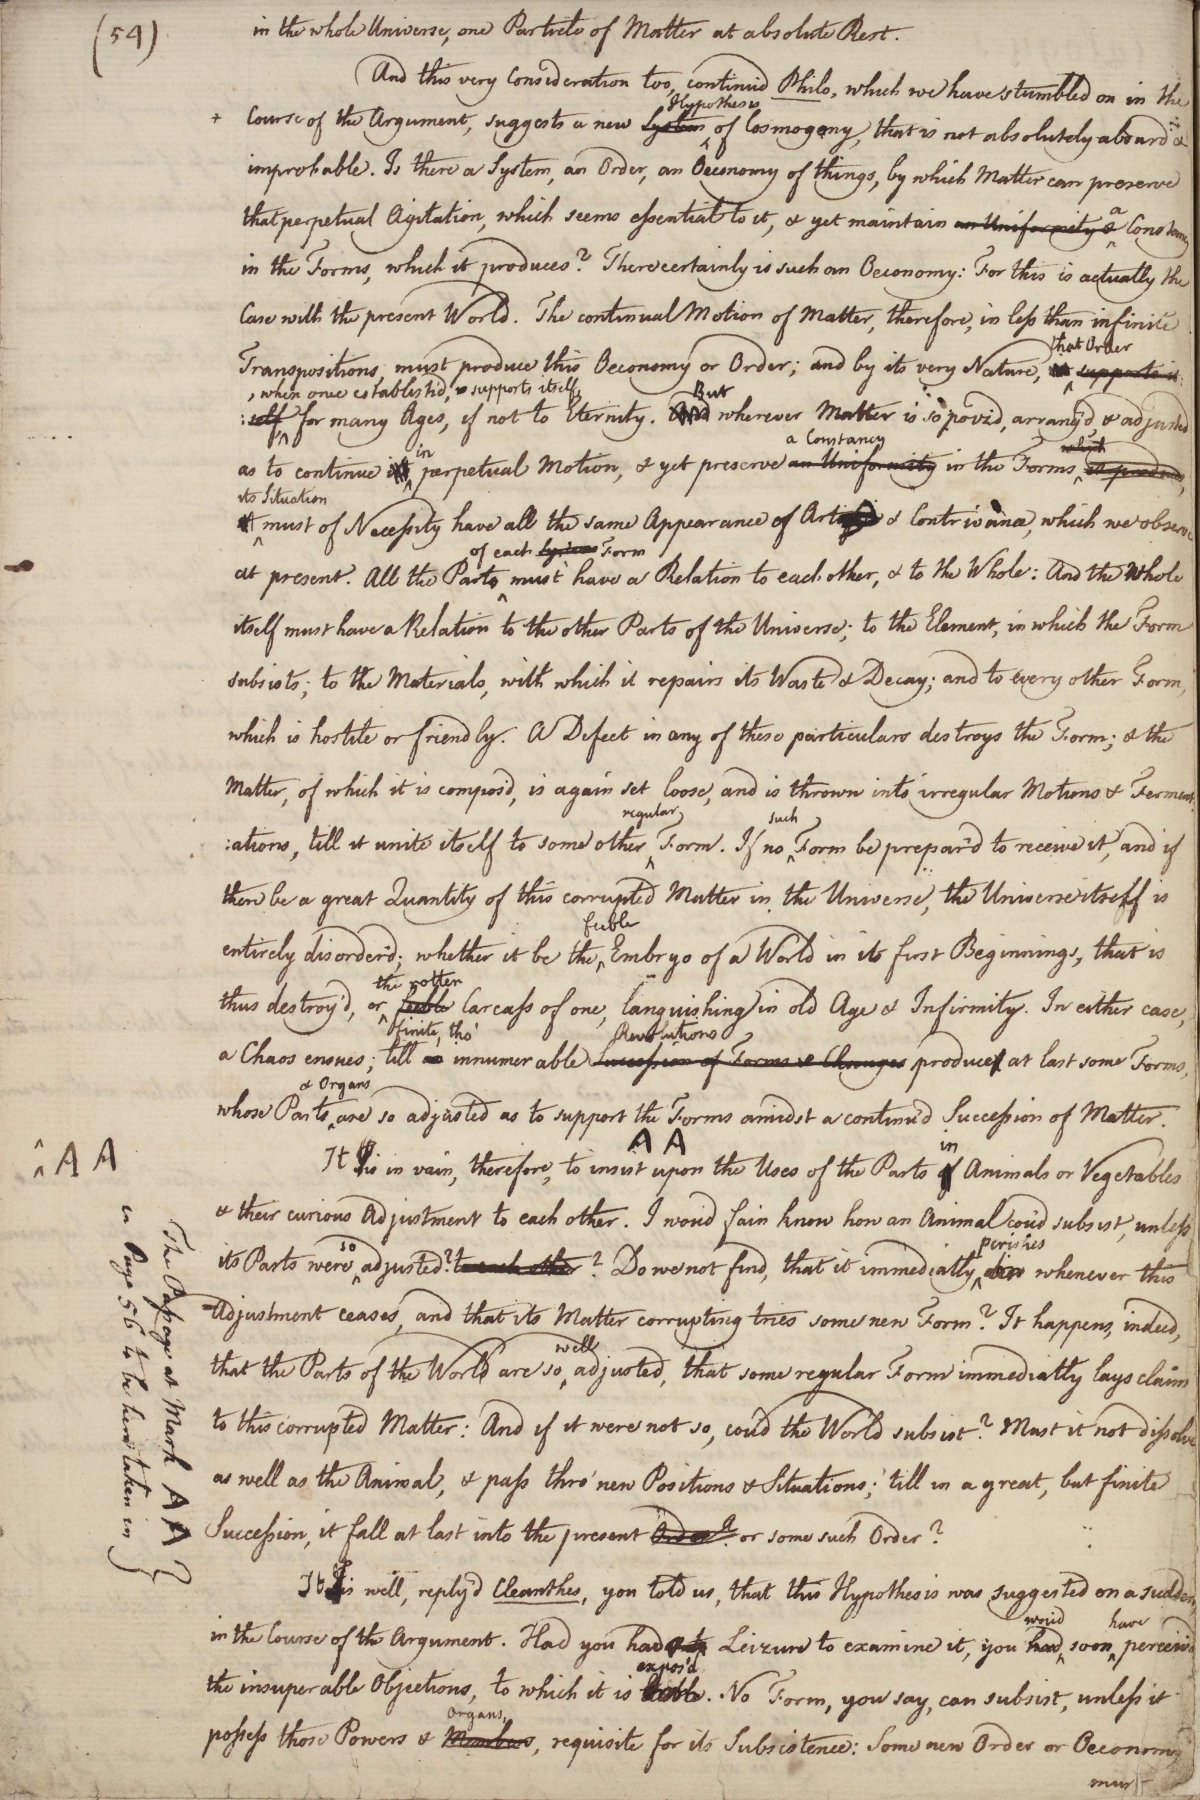 (54)
in the whole Universe, one Particle of Matter at absolute Rest.
And this very Consideration too, continu'd Philo, which we have stumbled on in the
Hypothesis
+ Course of the Argument, suggests a new System of Cosmogony, that is not absolutely absurd &
improbable. Is there a System, an Order, an Oeconomy of things, by which Matter can preserve
that perpetual Agitation, which seems essential to it, & yet maintain an Uniformity & a Constancy
in the Forms, which it produces? There certainly is such an Oeconomy: For this is actually the
Case with the present World. The continual Motion of Matter, therefore, in less than infinite
that Order
Transpositions, must produce this Oeconomy or Order; and by its very Nature, supports it
, when once establish'd, supports itself,
But
:self for many Ages, if not to Eternity. And wherever Matter is so poiz'd, arrang'd, & adjusted
in a Constancy which
as to continue perpetual Motion, & yet preserve an Uniformity in the Forms,
its Situation
must of Necessity have all the same Appearance of Art & Contrivance, which we observe
of each Form
at present. All the Parts must have a Relation to each other, & to the Whole: And the Whole
itself must have a Relation to the other Parts of the Universe; to the Element, in which the Form
subsists; to the Materials, with which it repairs its Waste & Decay; and to every other Form,
which is hostile or friendly. A Defect in any of these particulars destroys the Form; & the
Matter, of which it is compos'd, is again set loose, and is thrown into irregular Motions & Ferment
regular such
:ations, till it unite itself to some other Form. If no Form be prepar'd to receive it, and if
there be a great Quantity of this corrupted Matter in the Universe, the Universe itself is
feeble
entirely disorder'd; whether it be the Embryo of a World in its first Beginnings, that is
the rotten
thus destroy'd, or feeble Carcass of one, languishing in old Age & Infirmity. In either case,
finite, tho' Revolutions
a Chaos ensues; till innumerable Succession of Forms & Changes produce at last some Forms,
& Organs
whose Parts are so adjusted as to support the Forms amidst a continu'd Succession of Matter.
AA
in
It is in vain, therefore, to insist upon the Uses of the Parts of Animals or Vegetables
& their curious Adjustment to each other. I wou'd fain know how an Animal cou'd subsist, unless
so perishes
its Parts were adjusted? to each other? Do we not find, that it immediatly dies whenever this
Adjustment ceases, and that its Matter corrupting tries some new Form? It happens, indeed,
well
that the Parts of the World are so adjusted, that some regular Form immediatly lays claim
to this corrupted Matter: And if it were not so, cou'd the World subsist? Must it not dissolve
as well as the Animal, & pass thro' new Positions & Situations; till in a great, but finite
Succession, it fall at last into the present Order? or some such Order?
It is well, reply'd Cleanthes, you told us, that this Hypothesis was suggested on a sudden,
wou'd have
in the Course of the Argument. Had you had Leizure to examine it, you had soon perceiv'd
expos'd
the insuperable Objections, to which it is liable. No Form, you say, can subsist, unless it
Organs,
possess those Powers & Members, requisite for its Subsistence: Some new Order or Oeconomy
must
AA
The Passage at Mark AA
in Page 56 to be here taken in